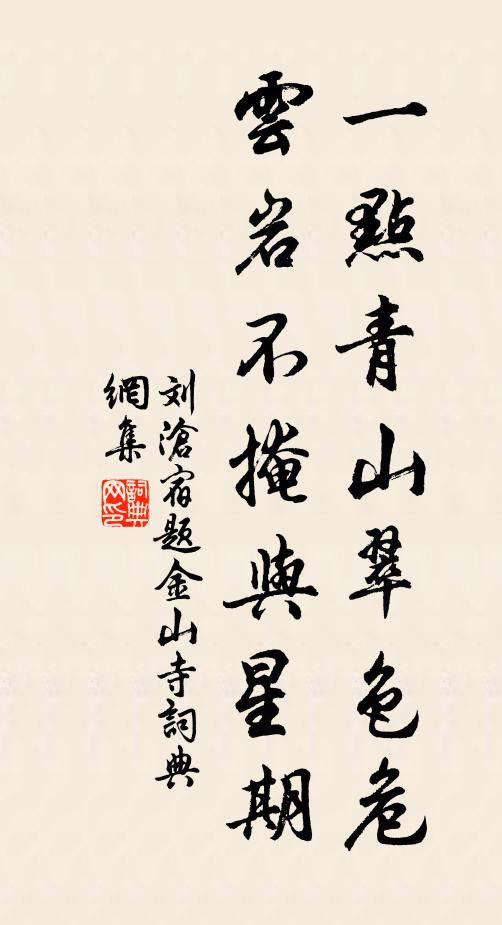 一點青山翠色危
雲岩不掩與星期
刘滄宿題金山寺詞典
網集
詞典
网印